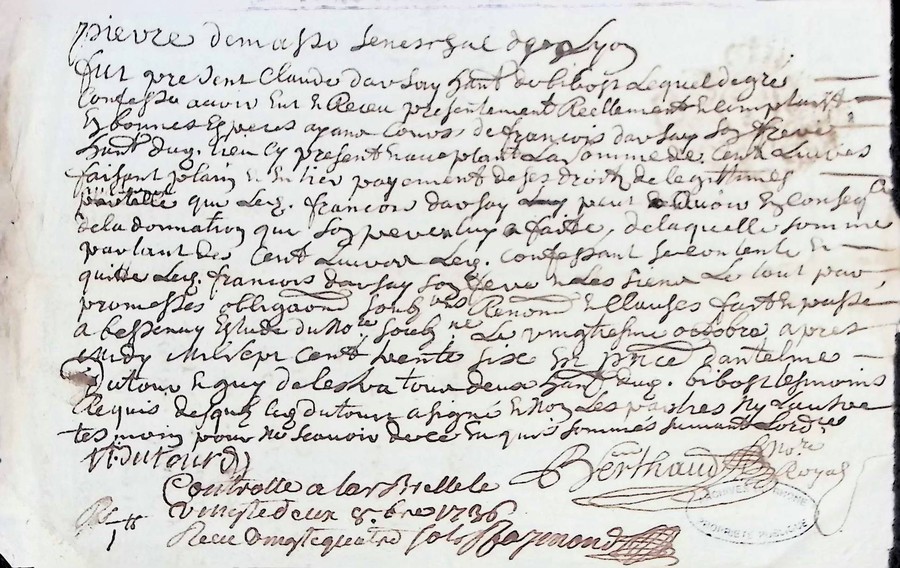 pierre demasso seneschal de Lyon
fut present Claude darsay hant de bibost Lequel de gré
Confesse avoir eut & Receu presentement Reellement &
& bonnes Especes ayant Cours de francois darsay son frere
hant dug. lieu Cy present & acceptant La somme de Cent Livres
faisant plain & Entier payement de ses droits de legittimes
que Led. francois darsay peut & Conseq
de la donnation que son pere luy a faitte, de laquelle somme
partant de Cent Livres Led. Confessant se contente &
quitte Led. francois darsay son frere & Les siens Le tout par
promesses obligaons soubns Renons & Clauses fait & passé
a bessenay Estude du Nore soubne Le vingtiesme octobre apres
midy Mil sept Cent trente six En pnce dantelme
Dutour & guy de Lestra tous deux hant dug. bibost tesmoins
Requis desquels Led. dutour a signé & Non Les parties Ny Lautre
tesmoin pour ne scavoir de ce Enquis sommes suivant Lordce
A Dutour
Berthaud Nore Royal
Controlle a larbrelle le
Vingtdeux 8.bre 1736
Receu vingtquatre sols Raymond
ARCHIVES RHONE
PROPRIETE PUBLIQUE